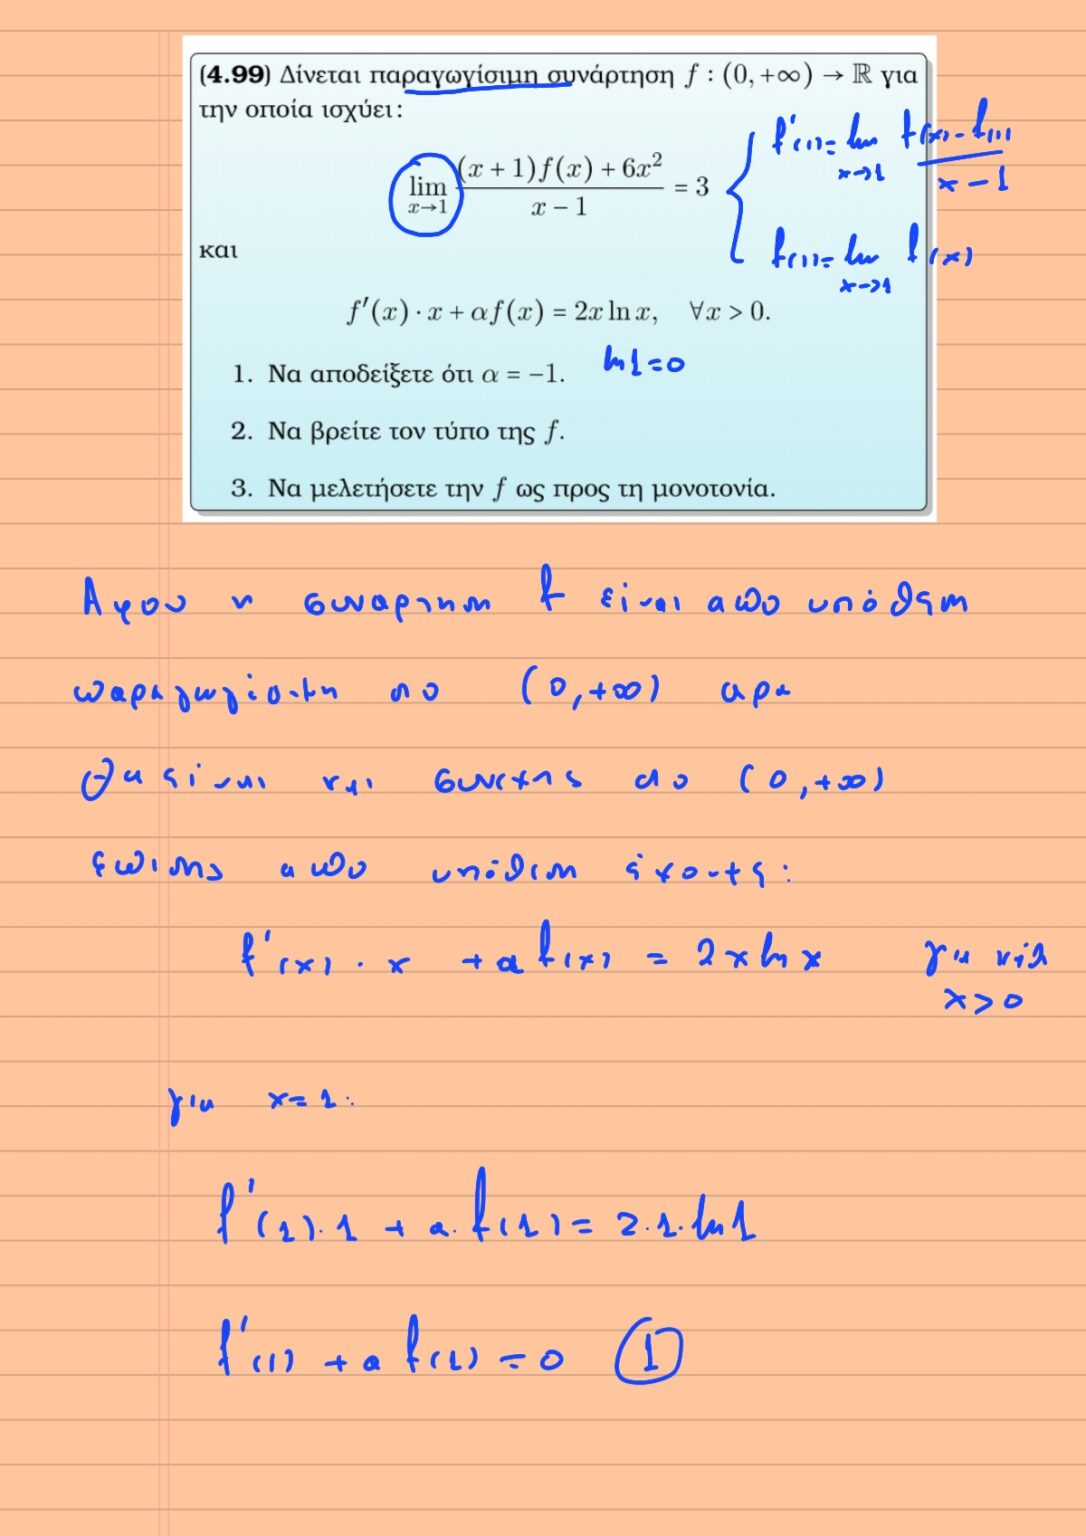 (4.99) Δίνεται παραγωγίσιμη συνάρτηση f : (0, +∞) → ℝ για
την οποία ισχύει:
lim x→1 ((x + 1)f(x) + 6x²)/(x − 1) = 3
f'(1) = lim x→1 (f(x) - f(1))/(x - 1)
f(1) = lim x→1 f(x)
και
f′(x) · x + αf(x) = 2x ln x, ∀x > 0.
1. Να αποδείξετε ότι α = −1.
ln1 = 0
2. Να βρείτε τον τύπο της f.
3. Να μελετήσετε την f ως προς τη μονοτονία.
Αφου η συναρτηση f είναι απο υπόθεση
παραγωγίσιμη στο (0, +∞) αρα
θα είναι και συνεχης στο (0, +∞)
επισης απο υπόθεση έχουμε:
f'(x) . x + a f(x) = 2x ln x για κάθε
x > 0
για x = 1:
f'(1) . 1 + a . f(1) = 2 . 1 . ln 1
f'(1) + a f(1) = 0 ①